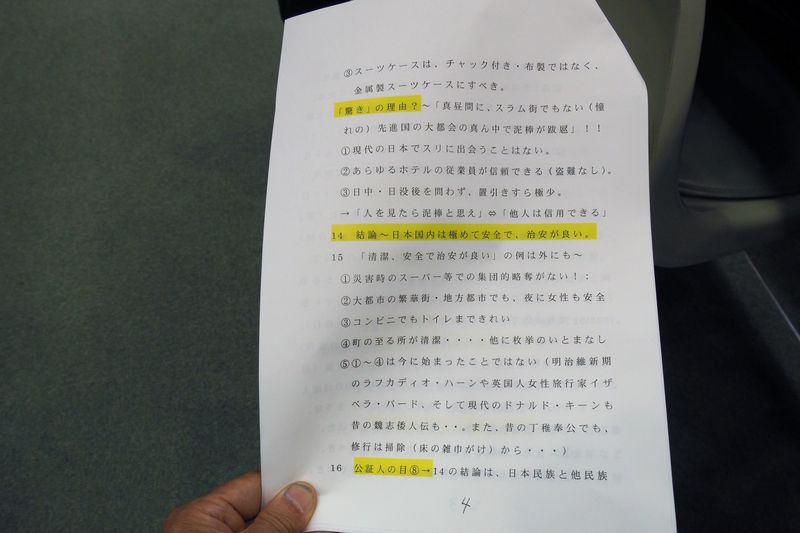 ③スーツケースは、チャック付き・布製ではなく、
金属製スーツケースにすべき。
「驚き」の理由？～「真昼間に、スラム街でもない（憧
れの）先進国の大都会の真ん中で泥棒が跋扈」！！
①現代の日本でスリに出会うことはない。
②あらゆるホテルの従業員が信頼できる（盗難なし）。
③日中・日没後を問わず、置引きすら極少。
→「人を見たら泥棒と思え」⇔「他人は信用できる」
14 結論～日本国内は極めて安全で、治安が良い。
15 「清潔、安全で治安が良い」の例は外にも～
①災害時のスーパー等での集団的略奪がない！；
②大都市の繁華街・地方都市でも、夜に女性も安全
③コンビニでもトイレまできれい
④町の至る所が清潔・・・・他に枚挙のいとまなし
⑤①～④は今に始まったことではない（明治維新期
のラフカディオ・ハーンや英国人女性旅行家イザ
ベラ・バード、そして現代のドナルド・キーンも
昔の魏志倭人伝も・・。また、昔の丁稚奉公でも、
修行は掃除（床の雑巾がけ）から・・・）
16 公証人の目⑧→14の結論は、日本民族と他民族
4